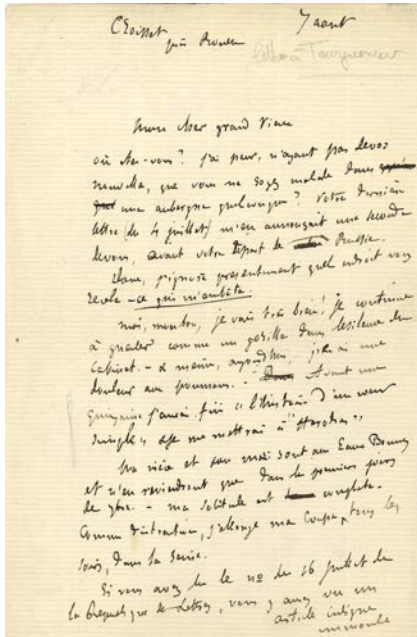 Croisset 7 aout
près Rouen
lettre à Tourgueneff
Mon cher grand vieux
où êtes-vous? j'ai peur, n'ayant pas de vos
nouvelles, que vous ne soyez malade dans
une auberge quelconque? Votre dernière
lettre (du 4 juillet) m'en annonçait une seconde
avant votre départ de Russie.
Donc, j'ignore présentement quel endroit vous
recèle - ce qui m'embête.
moi, je vais très bien! je continue
à gueuler comme un gorille dans le silence du
cabinet. - & même, aujourd'hui, j'ai une
douleur aux poumons. - Avant une
quinzaine j'aurai fini « l'histoire d'un coeur
simple » & je me mettrai à
Ma nièce et son mari sont aux Eaux Bonnes
et n'en reviendront que dans les premiers jours
de 7bre. - ma solitude est complète.
Comme distraction, j'allonge ma coupe, tous les
soirs, dans la Seine.
Si vous avez lu le no du 16 juillet de
la République des Lettres, vous y avez vu un
article
immonde